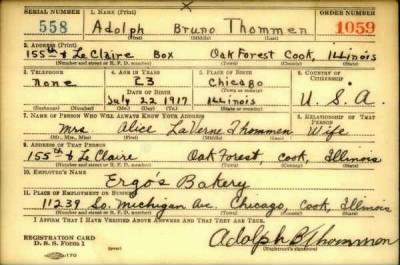 SERIAL NUMBER 1. NAME (Print) ORDER NUMBER
558 Adolph Bruno Thommen 1059
(First) (Middle) (Last)
2. ADDRESS (Print)
155th & Le Claire Box Oak Forest Cook, Illinois
(Number and street or R. F. D. number) (Town) (County) (State)
3. TELEPHONE 4. AGE IN YEARS 5. PLACE OF BIRTH 6. COUNTRY OF CITIZENSHIP
None 23 Chicago
DATE OF BIRTH (Town or county)
July 22 1917 Illinois U. S. A.
(Exchange) (Number) (Mo.) (Day) (Yr.) (State or country)
7. NAME OF PERSON WHO WILL ALWAYS KNOW YOUR ADDRESS 8. RELATIONSHIP OF THAT PERSON
Mrs. Alice LaVerne Thommen Wife
(Mr., Mrs., Miss) (First) (Middle) (Last)
9. ADDRESS OF THAT PERSON
155th & Le Claire Oak Forest, Cook, Illinois
(Number and street or R. F. D. number) (Town) (County) (State)
10. EMPLOYER'S NAME
Ergo's Bakery
11. PLACE OF EMPLOYMENT OR BUSINESS
11239 So. Michigan Ave. Chicago, Cook, Illinois
(Number and street or R. F. D. number) (Town) (County) (State)
I AFFIRM THAT I HAVE VERIFIED ABOVE ANSWERS AND THAT THEY ARE TRUE.
REGISTRATION CARD
D. S. S. Form 1 Adolph B Thommen
(Registrant's signature)